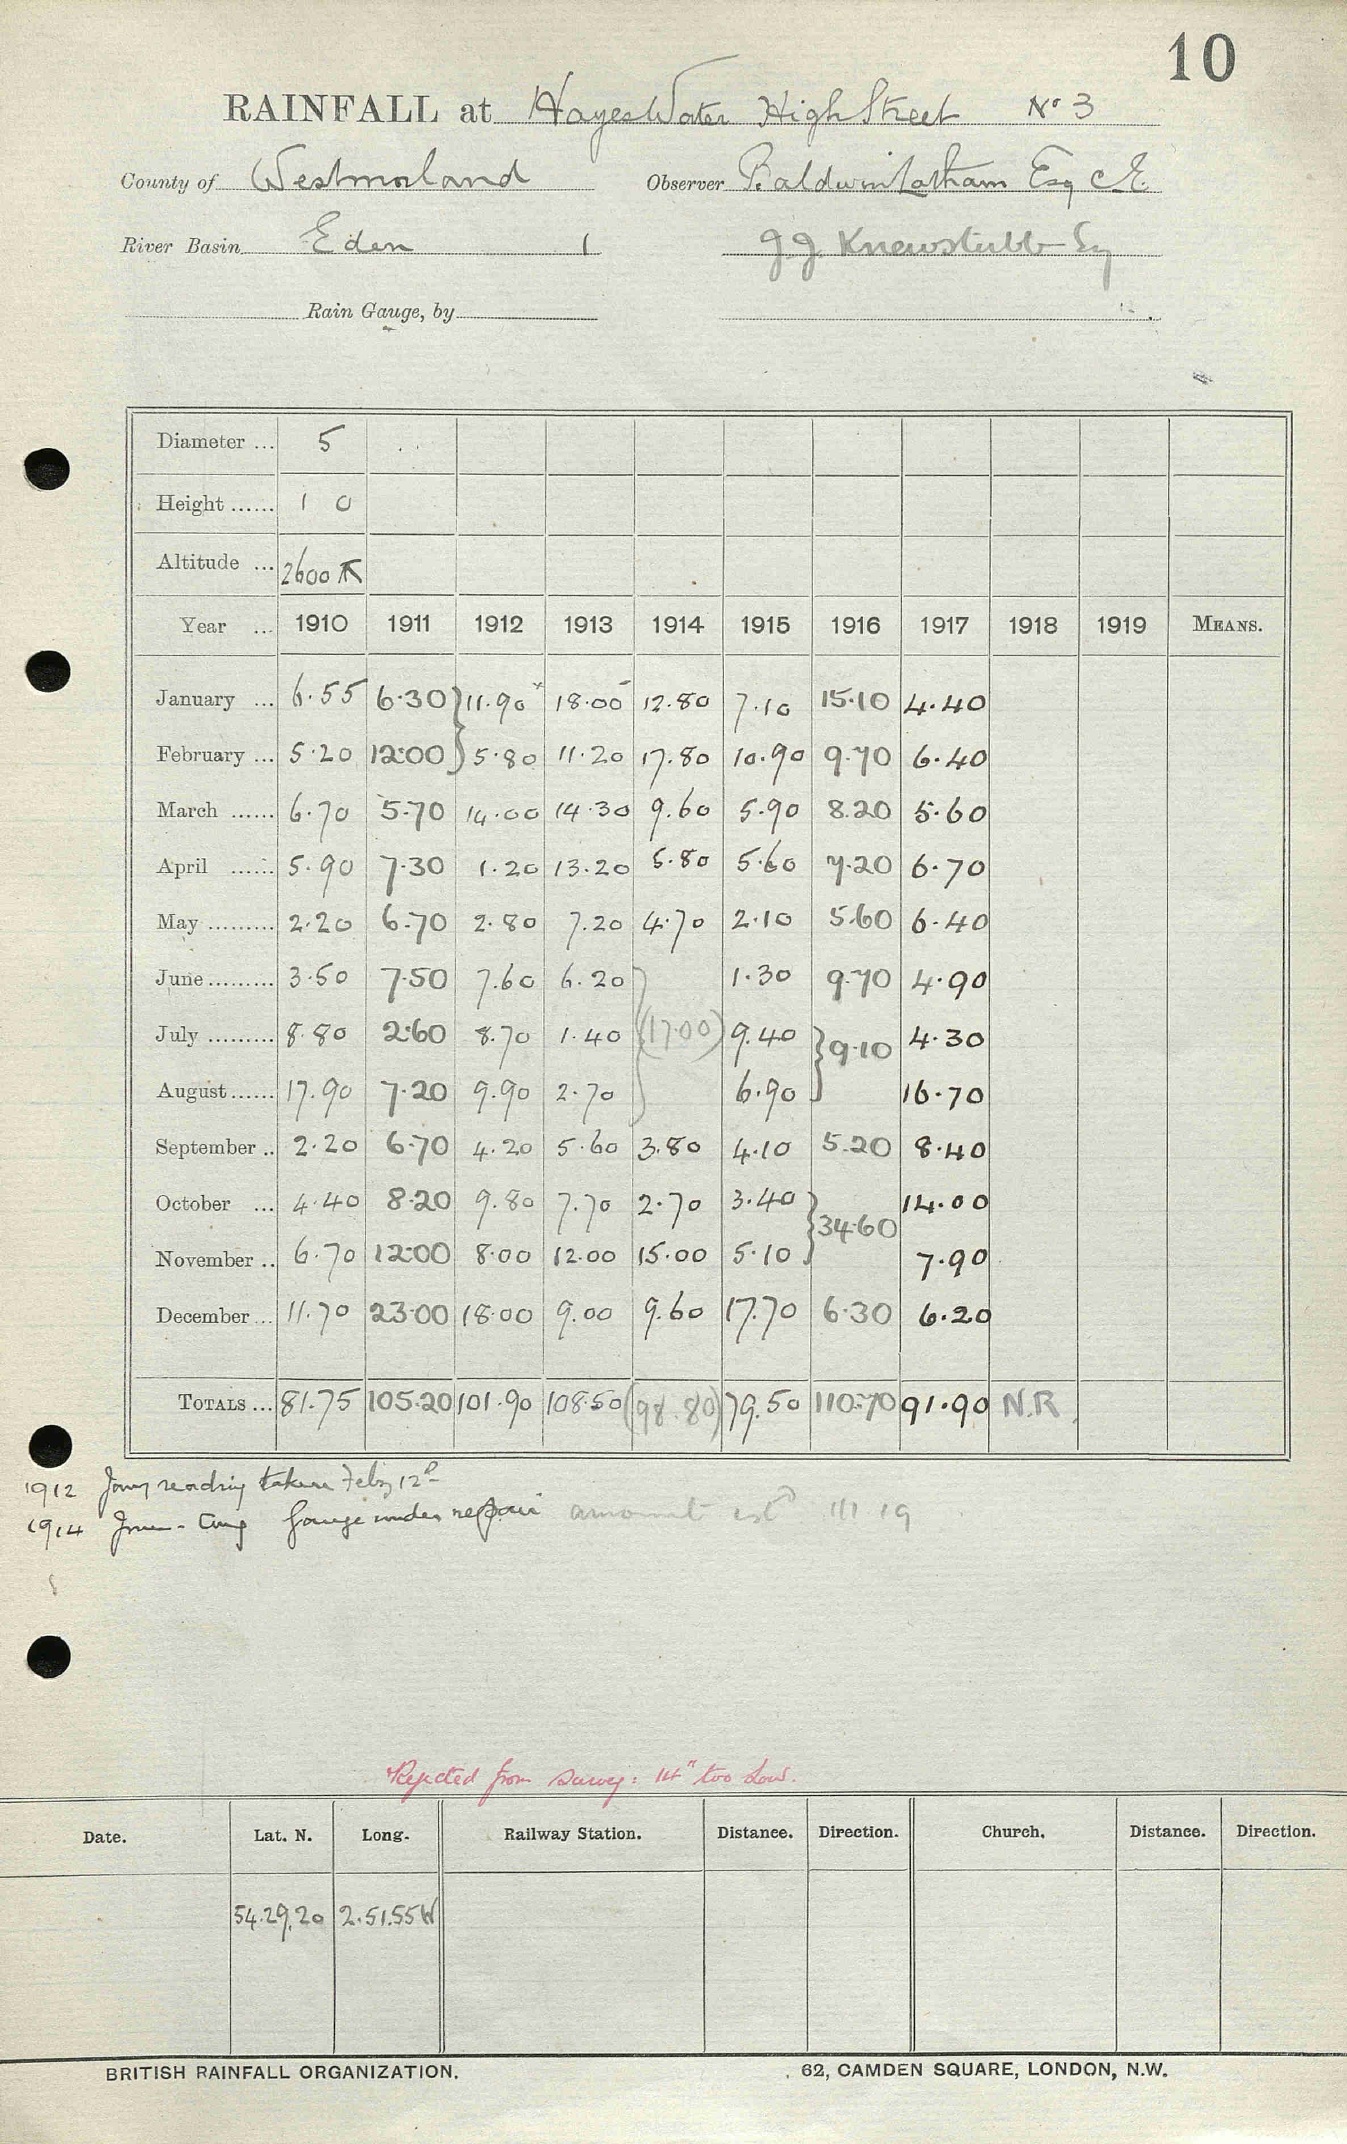 10
RAINFALL at Hayes Water High Street No 3
County of Westmorland Observer Baldwin Latham Esq C.E.
River Basin Eden 1 J J Knewstubb Esq
Rain Gauge, by
Diameter ... 5
Height ...... 1 0
Altitude ... 2600 ft
Year ... 1910 1911 1912 1913 1914 1915 1916 1917 1918 1919 MEANS.
January ... 6.55 6.30 11.90 18.00 12.80 7.10 15.10 4.40
February ... 5.20 12.00 5.80 11.20 17.80 10.90 9.70 6.40
March ...... 6.70 5.70 14.00 14.30 9.60 5.90 8.20 5.60
April ...... 5.90 7.30 1.20 13.20 5.80 5.60 7.20 6.70
May ......... 2.20 6.70 2.80 7.20 4.70 2.10 5.60 6.40
June ......... 3.50 7.50 7.60 6.20 1.30 9.70 4.90
July ......... 8.80 2.60 8.70 1.40 (17.00) 9.40 9.10 4.30
August ...... 17.90 7.20 9.90 2.70 6.90 16.70
September .. 2.20 6.70 4.20 5.60 3.80 4.10 5.20 8.40
October ... 4.40 8.20 9.80 7.70 2.70 3.40 34.60 14.00
November .. 6.70 12.00 8.00 12.00 15.00 5.10 7.90
December ... 11.70 23.00 18.00 9.00 9.60 17.70 6.30 6.20
TOTALS ... 81.75 105.20 101.90 108.50 (98.80) 79.50 110.70 91.90 N.R.
1912 Jany reading taken Feby 12th
1914 June - Aug Gauge under repair amount estd
Rejected from survey: 14" too low.
Date. Lat. N. Long. Railway Station. Distance. Direction. Church. Distance. Direction.
54.29.20 2.51.55W
BRITISH RAINFALL ORGANIZATION. 62, CAMDEN SQUARE, LONDON, N.W.